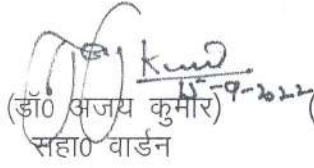 15-9-2022
(डॉ0 अजय कुमार) (
सहा0 वार्डन